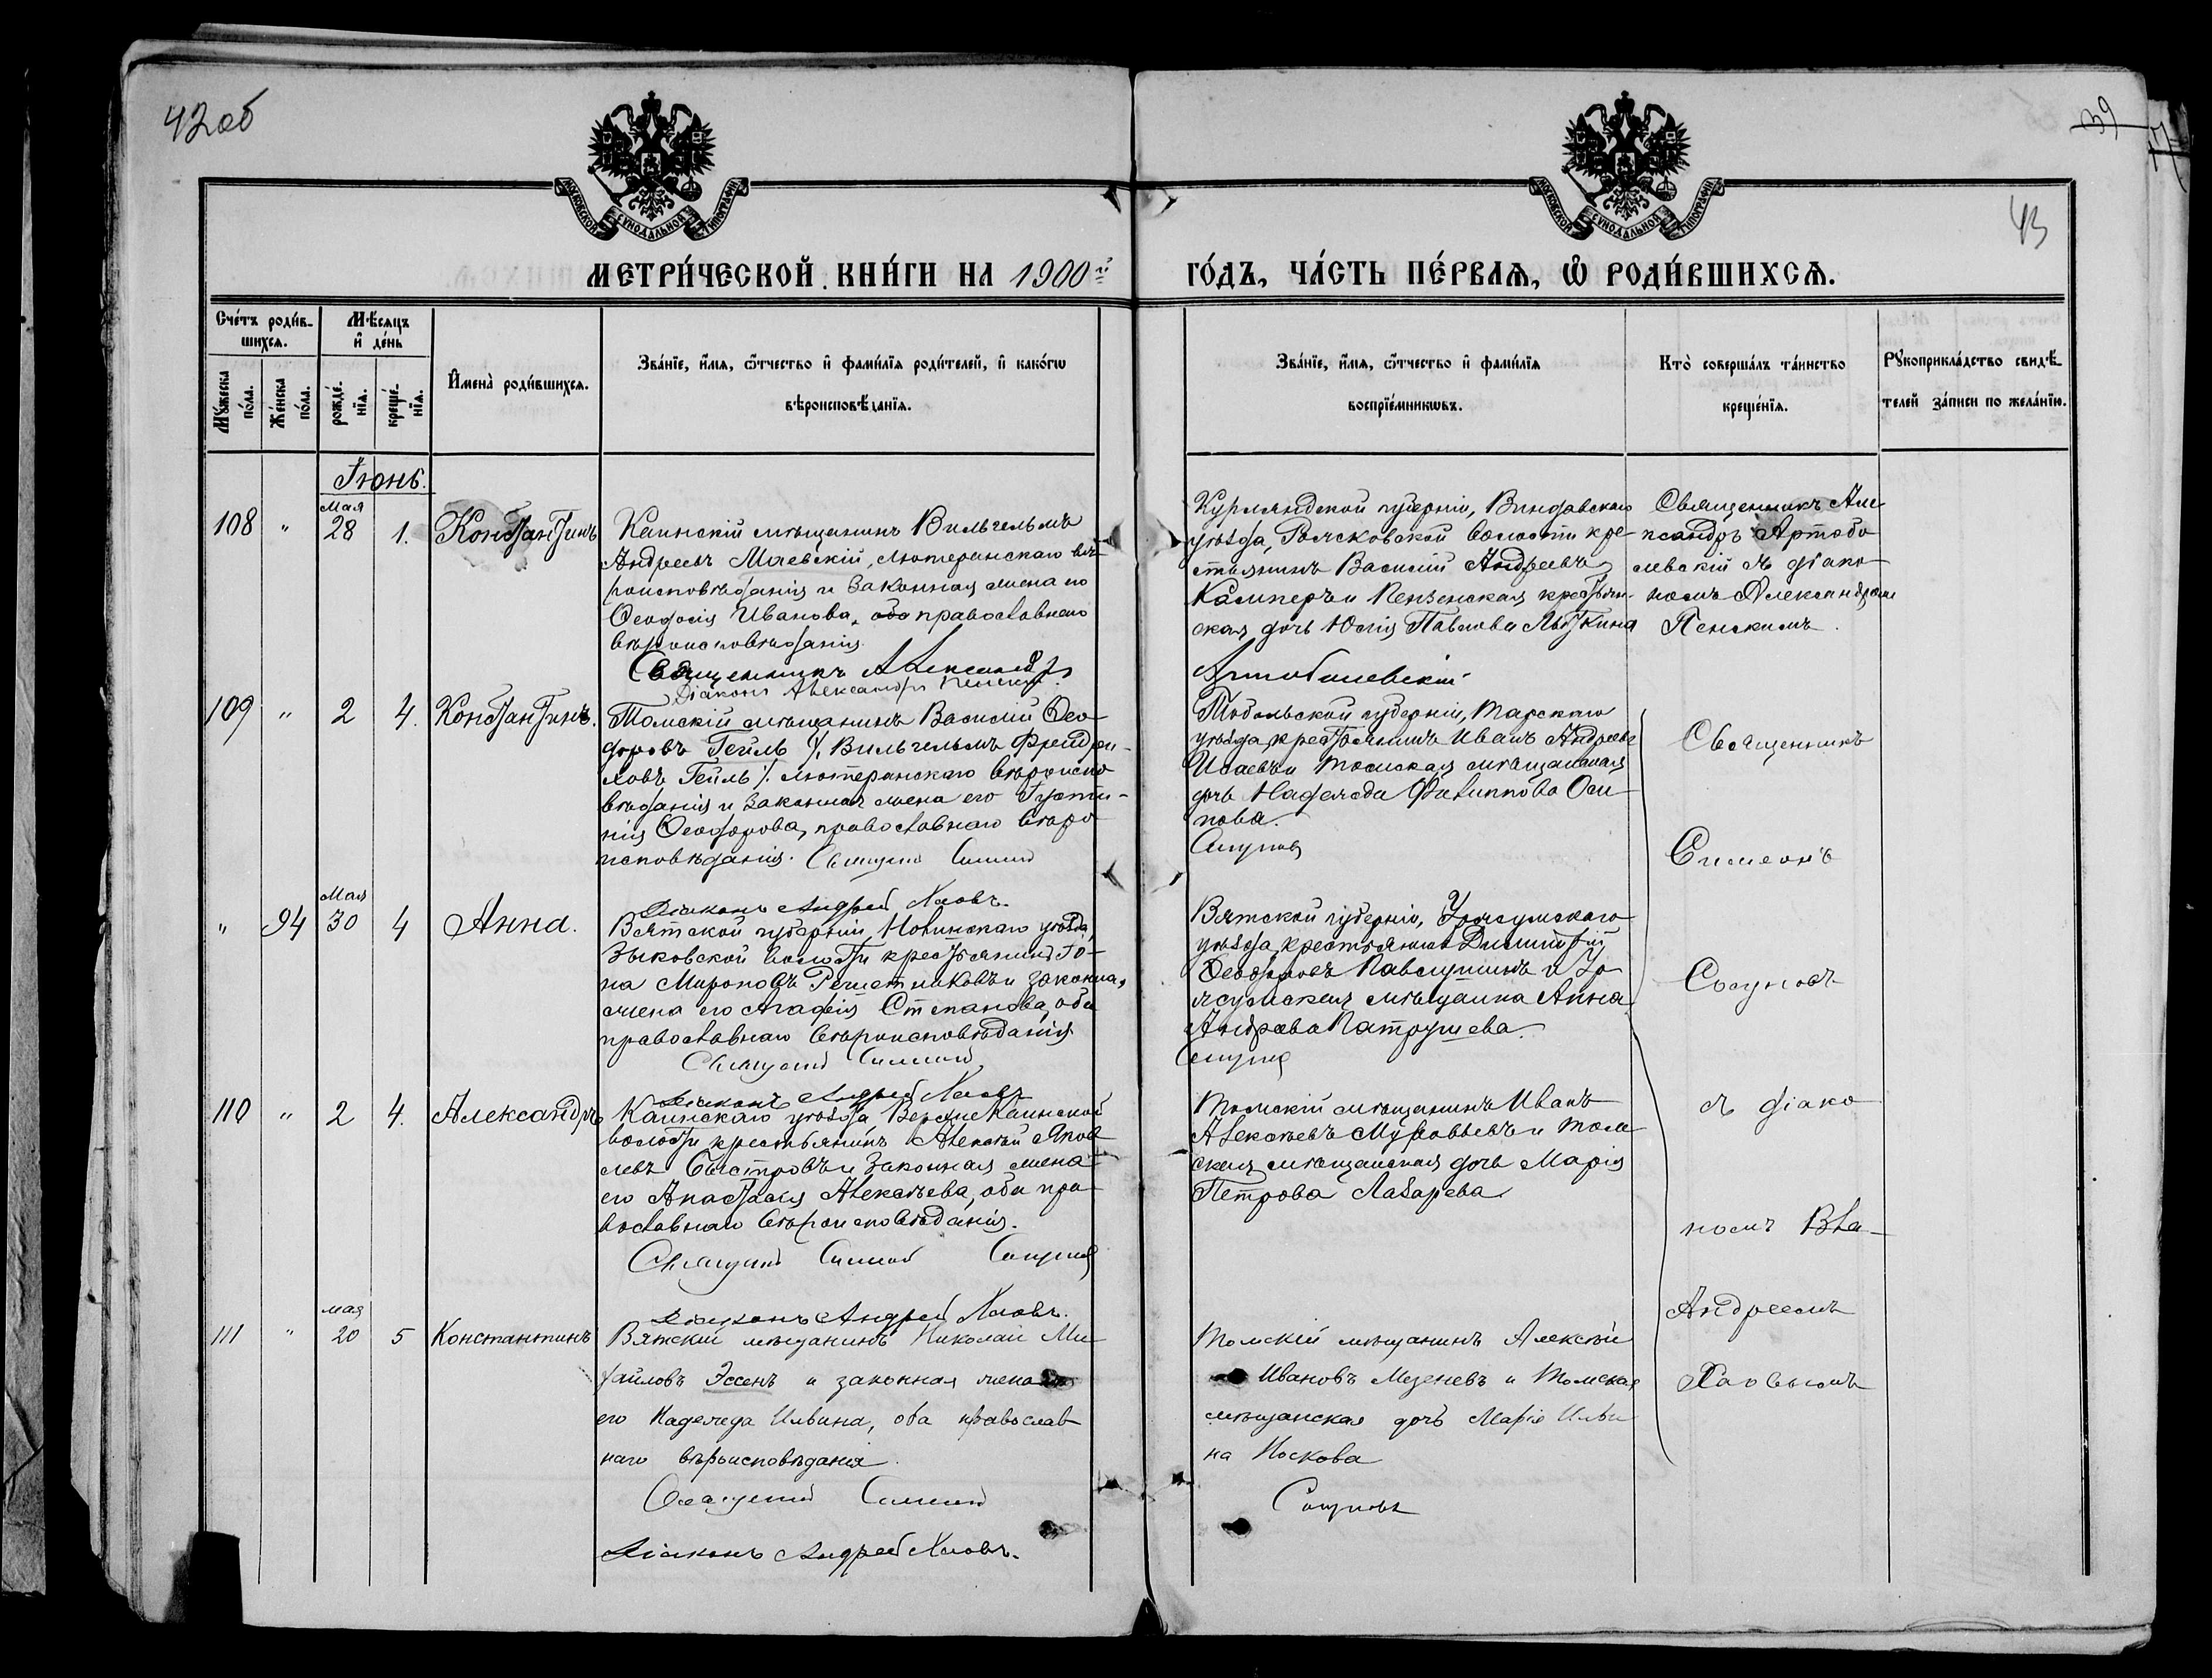 42об
39
43
МОСКОВСКОЙ СѴНОДАЛЬНОЙ ТИПОГРАФІИ
МОСКОВСКОЙ СѴНОДАЛЬНОЙ ТИПОГРАФІИ
МЕТРИ́ЧЕСКОЙ КНИ́ГИ НА 1900й
ГО́ДЪ, ЧА́СТЬ ПЕ́РВАѦ, Ѡ҆ РОДИ́ВШИХСѦ.
Сче́тъ роди́в-
шихсѧ.
Мѣ́сѧцъ
и҆ де́нь
Мꙋ́жеска
по́ла.
Же́нска
по́ла.
рожде́-
нїѧ.
креще́-
нїѧ.
И҆мена̀ роди́вшихсѧ.
Зва́нїе, и҆́мѧ, ѻ҆́тчество и҆ фами́лїѧ роди́телей, и҆ како́гѡ
вѣроисповѣ́данїѧ.
Зва́нїе, и҆́мѧ, ѻ҆́тчество и҆ фами́лїѧ
воспрїе́мникѡвъ.
Кто̀ соверша́лъ та́инство
креще́нїѧ.
Рꙋкоприкла́дство свидѣ́-
телей за́писи по жела́нїю.
Іюнь.
108 " Мая 28 1. Константинъ
Каинскій мѣщанинъ Вильгельмъ
Андреевъ Мачевскій, лютеранскаго вѣ-
роисповѣданія и законная жена его
Ѳеодосія Иванова, оба православнаго
вѣроисповѣданія.
Священникъ Александръ
Діаконъ Александръ Пенскій.
Курляндской губерніи, Виндавскаго
уѣзда, волости кре-
стьянинъ Василій Андреевъ
Камперъ и Пензенская крестьян-
ская дочь Юлія Павлова
Артоболевскій
Священникъ Але-
ксандръ Артобо-
левскій съ діако-
номъ Александромъ
Пенскимъ.
109 " 2 4. Константинъ.
Томскій мѣщанинъ Василій Ѳео-
доровъ Гейль /, Вильгельмъ Фрейдри-
ховъ Гейль /. лютеранскаго вѣроиспо-
вѣданія и законная жена его Густи-
нія Ѳеодорова, православнаго вѣро-
исповѣданія. Священникъ Симеонъ
Діаконъ Андрей Хаовъ.
Тобольской губерніи, Тарскаго
уѣзда, крестьянинъ Иванъ Андреевъ
Исаевъ и томская мѣщанская
дочь Надежда Филиппова Оси-
пова.
Сосуновъ
" 94 Мая 30 4 Анна.
Вятской губерніи, Нолинскаго уѣзда,
Зыковской волости крестьянинъ Іо-
на Мироновъ Решетниковъ и законная
жена его Агафія Степанова, оба
православнаго вѣроисповѣданія
Священникъ Симеонъ
Діаконъ Андрей Хаовъ
Вятской губерніи, Уржумскаго
уѣзда, крестьянинъ Димитрій
Ѳеодоровъ Павлушинъ и Ур-
жумская мѣщанка Анна
Андреева Патрушева.
Сосуновъ
110 " 2 4. Александръ
Каинскаго уѣзда Верхне Каинской
волости крестьянинъ Алексѣй Яков-
левъ Быстровъ и законная жена
его Анастасія Алексѣева, оба пра-
вославнаго вѣроисповѣданія.
Священникъ Симеонъ Сосуновъ
Діаконъ Андрей Хаовъ.
Томскій мѣщанинъ Иванъ
Алексѣевъ Муравьевъ и том-
ская мѣщанская дочь Марія
Петрова Лазарева
Священникъ
Симеонъ
Сосуновъ
съ діако-
номъ
Андреемъ
Хаовымъ
111 " мая 20 5 Константинъ
Вятскій мѣщанинъ Николай Ми-
хайловъ Эссенъ и законная жена
его Надежда Ильина, оба православ-
наго вѣроисповѣданія.
Священникъ Симеонъ
Діаконъ Андрей Хаовъ.
Томскій мѣщанинъ Алексѣй
Ивановъ Мезеневъ и Томская
мѣщанская дочь Марія Ильи-
на Носкова
Сосуновъ